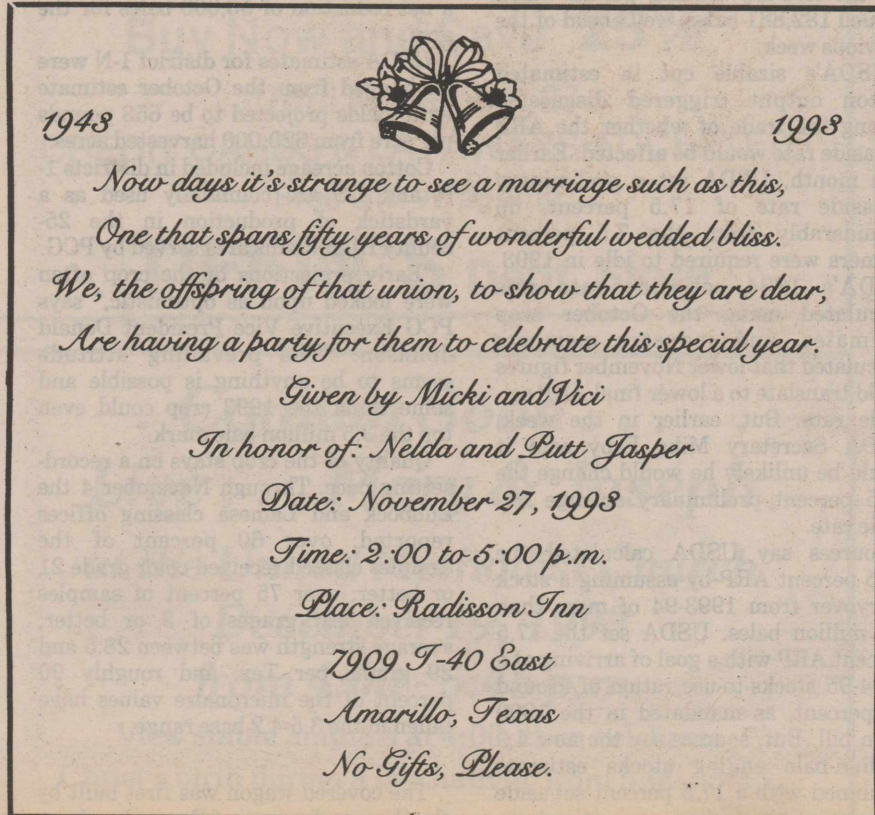 1943 1993
Now days it's strange to see a marriage such as this,
One that spans fifty years of wonderful wedded bliss.
We, the offspring of that union, to show that they are dear,
Are having a party for them to celebrate this special year.
Given by Micki and Vici
In honor of: Nelda and Putt Jasper
Date: November 27, 1993
Time: 2:00 to 5:00 p.m.
Place: Radisson Inn
7909 I-40 East
Amarillo, Texas
No Gifts, Please.